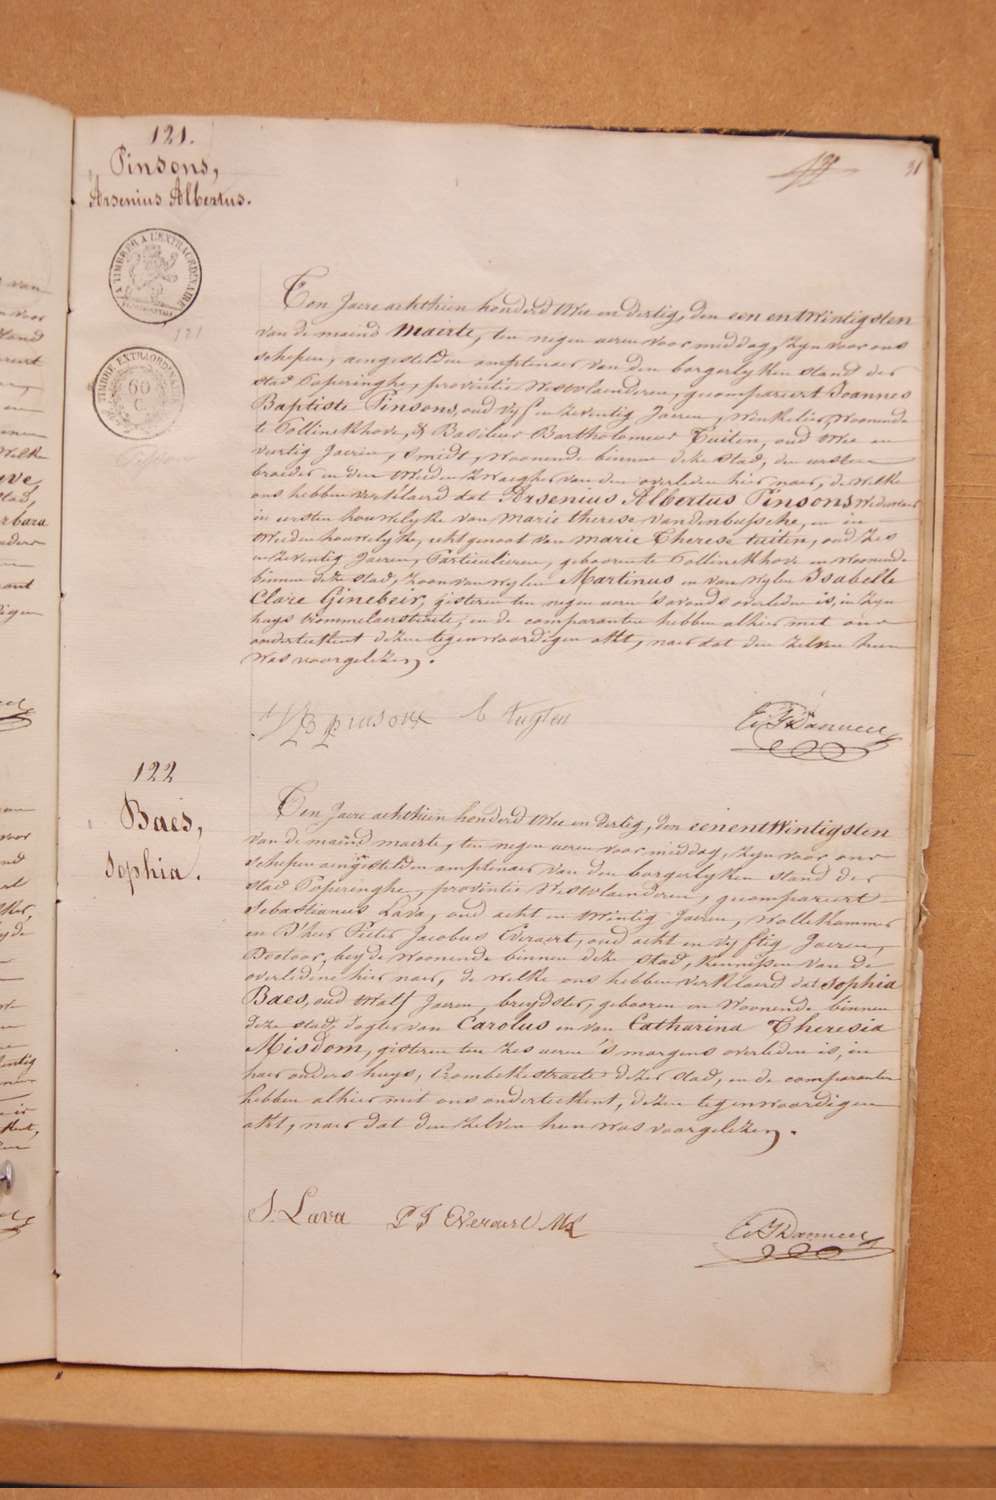 31
121.
Pinsons,
Arsenius Albertus.
TIMBRER A L'EXTRAORDINAIRE
121
TIMBRE EXTRAORDINAIRE
60
Ten Jaere achthien honderd twee en dertig, den een entwintigsten
van de maend Maerte, ten negen ueren voormiddag, zyn voor ons
schepen, aengestelden amptenaer van den borgerlyken stand der
stad Poperinghe, provintie Westvlaenderen, gecompareert Joannes
Baptiste Pinsons, oud vyf en zeventig Jaeren, Winkelier, Woonende
te Pollinckhove, & Basilius Bartholomeus Tuiten, oud twee en
veertig Jaeren, Smidt, woonende binnen deze stad, den eersten
broeder en den tweeden zwaegher van den overleden hier naer, de welke
ons hebben verklaerd dat Arsenius Albertus Pinsons Weduwaer
in eersten houwelyke van Marie Therese Vandenbussche, en in
tweeden houwelyke, echtgenoot van Marie Therese Tuiten, oud zes
en zeventig Jaeren, Particulieren, gebooren te Pollinckhove en Woonende
binnen deze stad, zoon van wylen Martinus en van wylen Isabelle
Clare Ginebeir, gisteren ten negen ueren 's avonds overleden is, in zyn
huys trommelaerstraete, en de comparanten hebben alhier met ons
onderteekent dezen tegenwoordigen akt, naer dat den zelven hun
was voorgelezen.
JB Pinsons
B Tuyten
122
Baes,
Sophia.
Ten Jaere achthien honderd twee en dertig, den eenentwintigsten
van de maend maerte, ten negen ueren voormiddag, zyn voor ons
schepen aengestelden amptenaer van den borgerlyken stand der
stad Poperinghe, provintie Westvlaenderen, gecompareert
Sebastianus Lava, oud acht en twintig Jaeren, Wollekammer
en D'heer Pieter Jacobus Everaert, oud acht en vyftig Jaeren,
Doctoor, beyde woonende binnen deze stad, kennissen van de
overledene hier naer, de welke ons hebben verklaerd dat Sophia
Baes, oud twalf Jaeren, breydster, gebooren en Woonende binnen
deze stad, dogter van Carolus en van Catharina Theresia
Misdom, gisteren ten zes ueren 's morgens overleden is, in
haer ouders huys, trombekestraete dezer stad, en de comparanten
hebben alhier met ons onderteekent, dezen tegenwoordigen
akt, naer dat den zelven hun was voorgelezen.
S. Lava
P J Everaert